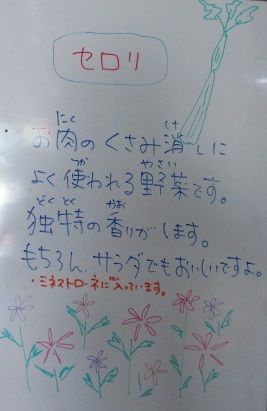 セロリ
にく け
お肉のくさみ消しに
つか やさい
よく使われる野菜です。
どくとく かお
独特の香りがします。
もちろん、サラダでもおいしいですよ。
・ミネストローネに入っています。